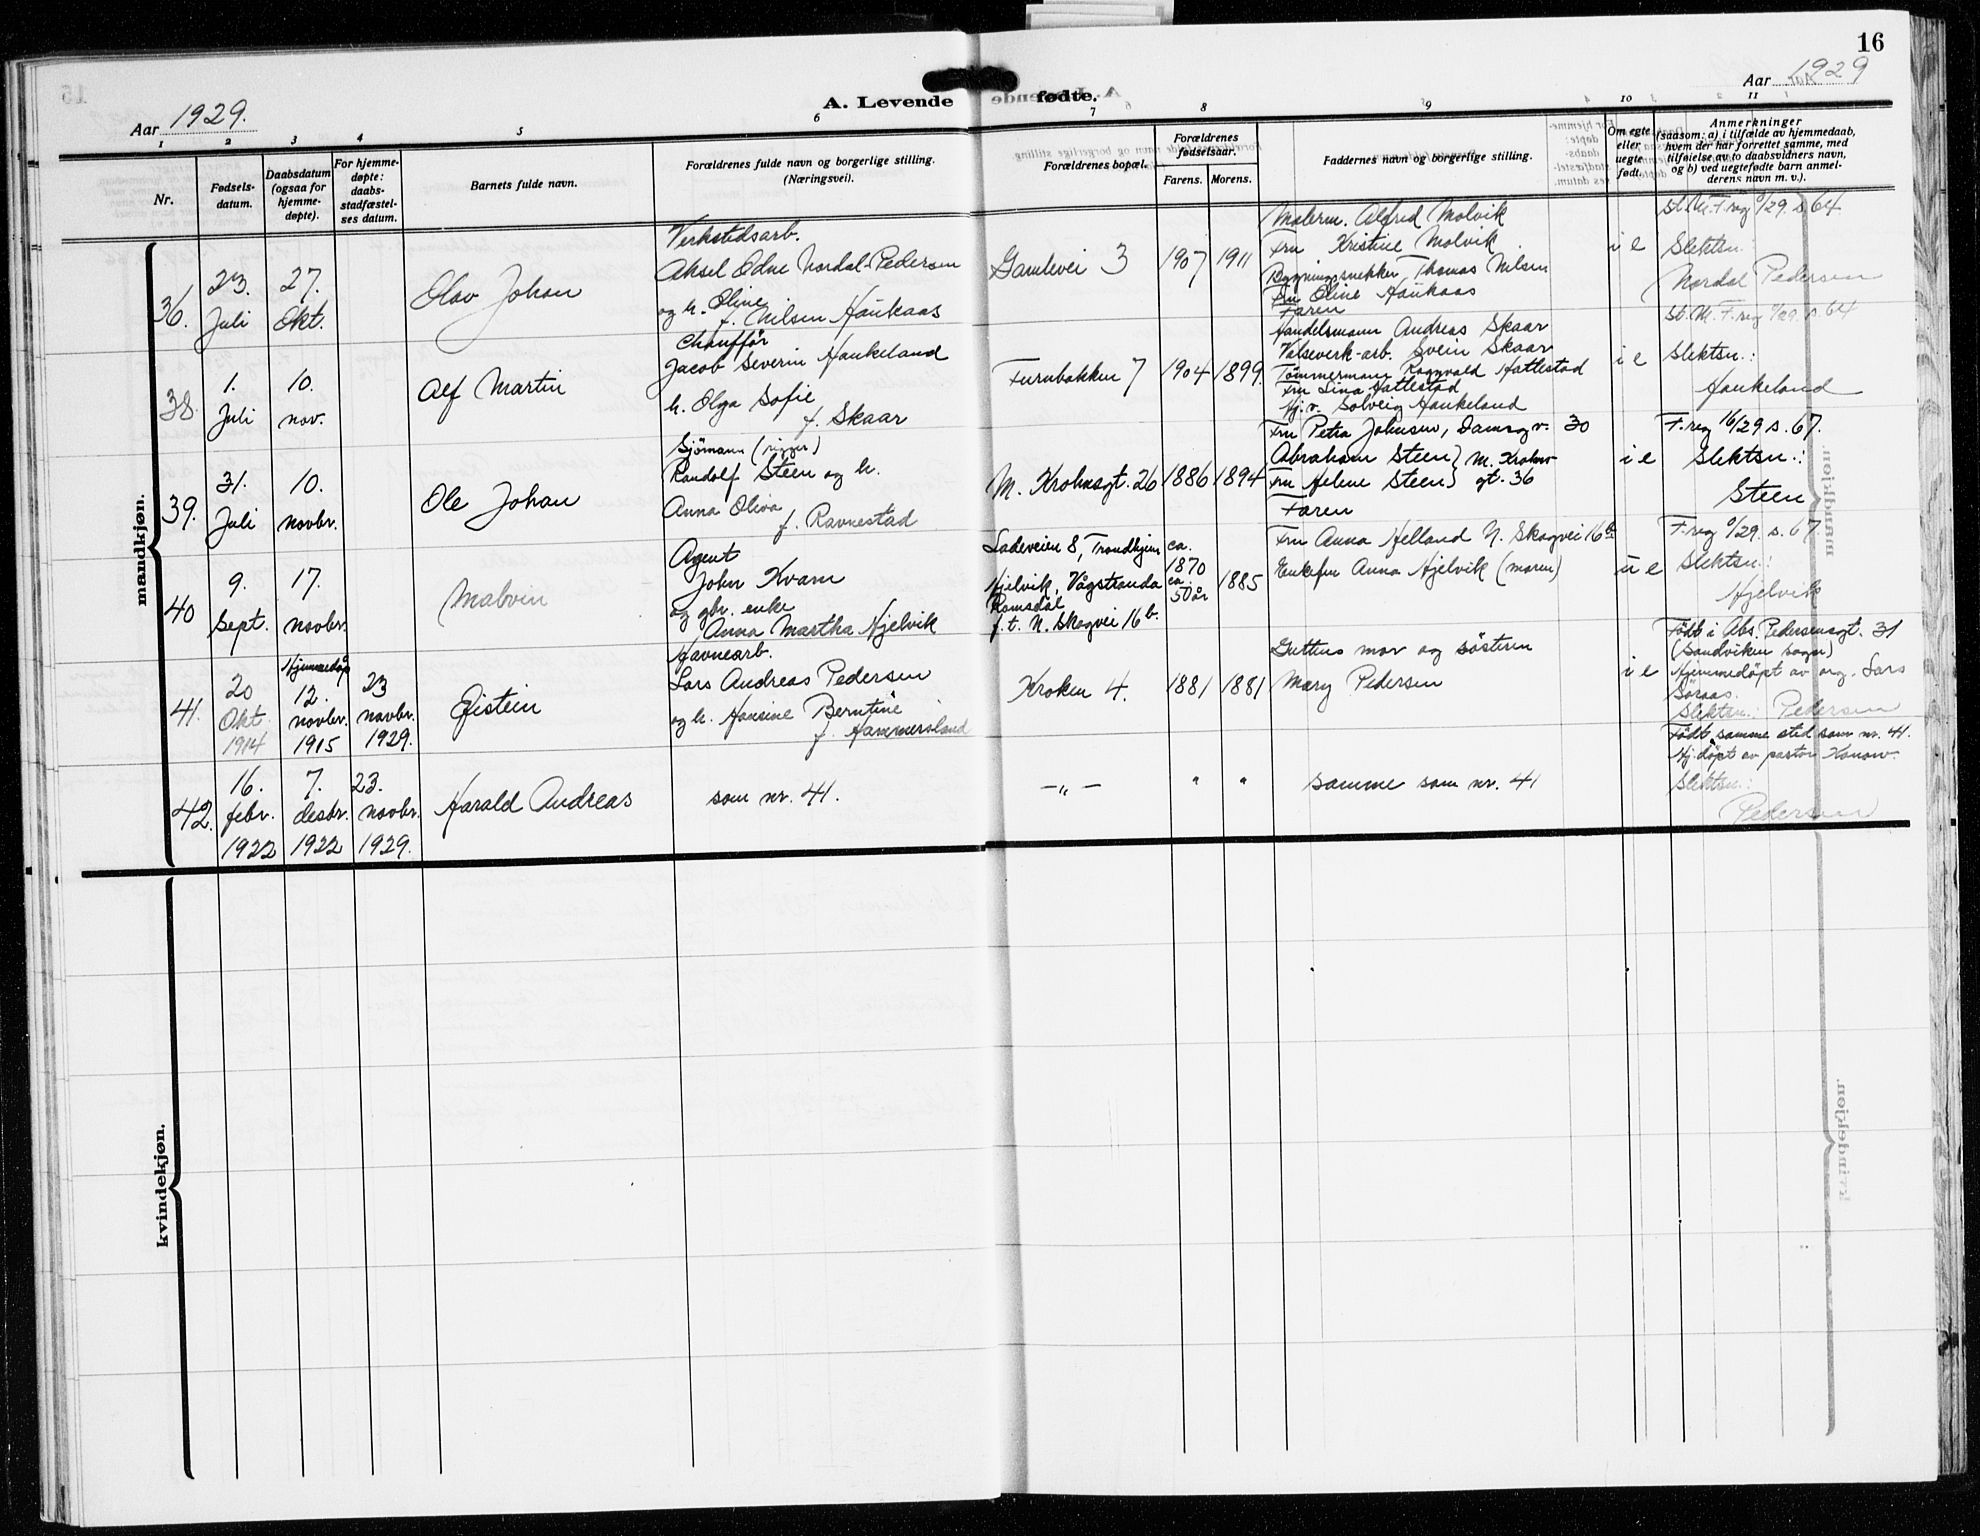 16
Aar 1929.
A. Levende fødte.
Aar 1929
1 2 3 4 5 6 7 8 9 10 11
Nr.
Fødsels-
datum.
Daabsdatum
(ogsaa for
hjemme-
døpte).
For hjemme-
døpte:
daabs-
stadfæstel-
ses datum.
Barnets fulde navn.
Forældrenes fulde navn og borgerlige stilling.
(Næringsvei).
Forældrenes bopæl.
Forældrenes
fødselsaar.
Farens. Morens.
Faddernes navn og borgerlige stilling.
Om egte
eller
uegte
født.
Anmerkninger
(saasom: a) i tilfælde av hjemmedaab,
hvem der har forrettet samme, med
tilføielse av to daabsvidners navn,
og b) ved uegtefødte barn anmel-
derens navn m. v.).
mandkjøn.
36.
23.
Juli
27.
Okt.
Olav Johan
Verkstedsarb.
Aksel Odne Nordal-Pedersen
og h. Oline
f. Nilsen Haukaas
Gamlevei 3
1907
1911
Malerm. Alfred Molvik
Fru Kristine Molvik
Bygningssnekker Thomas Nilsen
Fru Oline Haukaas
Faren
i e
St. M. F. reg /29 s. 64
Slektsn.:
Nordal Pedersen
38.
1.
Juli
10.
nov.
Alf Martin
Chauffør
Jacob Severin Haukeland
h. Olga Sofie
f. Skaar
Furubakken 7
1904
1899.
Handelsmann Andreas Skaar
Valseverk-arb. Svein Skaar
Tømmermann Ragnvald Hattestad
Fru Lina Hattestad
Hj.v. Solveig Haukeland
i e
St. M. F. reg /29. s. 64
Slektsn.:
Haukeland
39.
31.
Juli
10.
novbr.
Ole Johan
Sjømann (rigger)
Randolf Steen og h.
Anna Oliva
f. Ravnestad
M. Krohnsgt. 26
1886
1894
Fru Petra Johnsen, Damsgv. 30
Abraham Steen } M. Krohns-
Fru Helene Steen } gt. 36
Faren
i e
F. reg 16/29 s. 67.
Slektsn.:
Steen
40
9.
Sept.
17.
novbr.
Malvin
Agent
John Kvam
og gbr. enke
Anna Martha Hjelvik
Ladeveien 8, Trondhjem
Hjelvik, Vågstranda
Romsdal
f. t. N. Skogvei 16 b.
ca.
1870
ca.
50 år
1885
Fru Anna Helland N. Skogvei 16 b
Enkefru Anna Hjelvik (moren)
u e
F. reg /29 s. 67
Slektsn.:
Hjelvik
41.
20
Okt
1914
Hjemmedøp
12.
novbr.
1915
23
novbr.
1929.
Øistein
Havnearb.
Lars Andreas Pedersen
og h. Hansine Berntine
f. Hammersland
Kroken 4.
1881
1881
Guttens mor og søsteren
Mary Pedersen
i e
Født i Abs. Pedersensgt. 31
(Sandviken sogn)
Hjemmedøpt av org. Lars
Søraas.
Slektsn.: Pedersen
42.
16.
febr.
1922
7.
desbr.
1922
23.
novbr.
1929.
Harald Andreas
som nr. 41.
— „ —
"
"
samme som nr. 41
Født samme sted som nr. 41.
Hj.døpt av pastor Konow.
Slektsn.:
Pedersen
kvindekjøn.